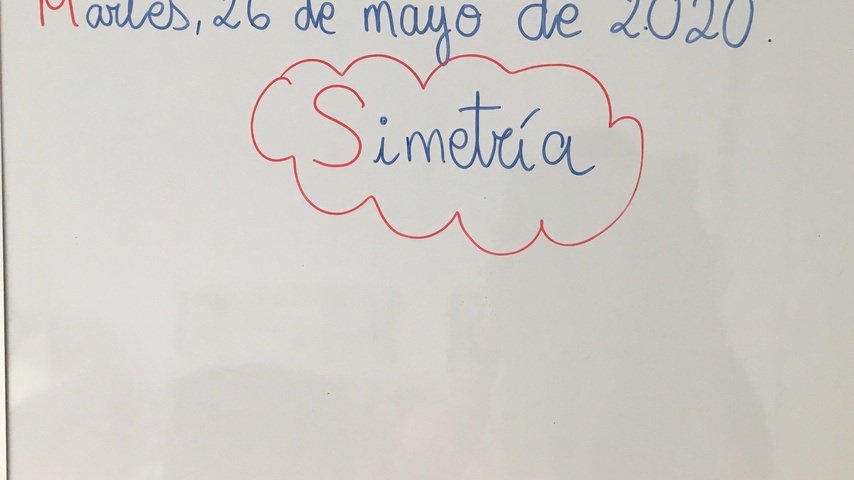 Martes, 26 de mayo de 2.020.
Simetría